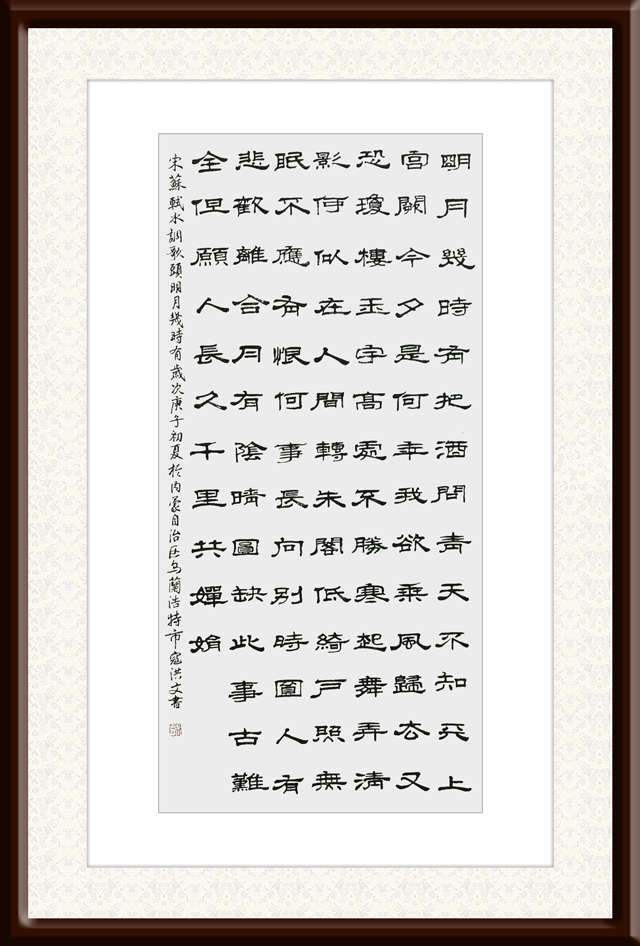 明月幾時有把酒問青天不知天上
宮闕今夕是何年我欲乘風歸去又
恐瓊樓玉宇高處不勝寒起舞弄清
影何似在人間轉朱閣低綺戶照無
眠不應有恨何事長向別時圓人有
悲歡離合月有陰晴圓缺此事古難
全但願人長久千里共嬋娟
宋蘇軾水調歌頭明月幾時有歲次庚子初夏於内蒙自治区乌蘭浩特市寇洪文書